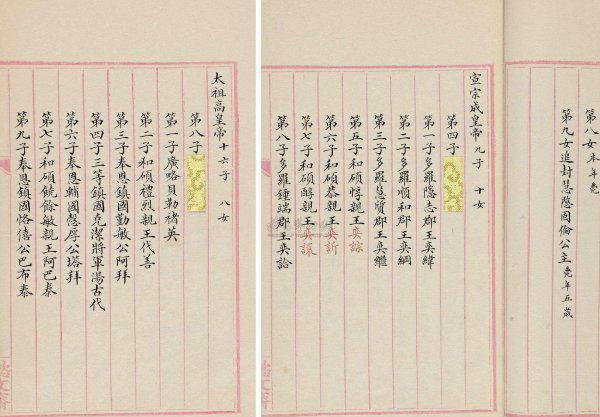 第八女 未年薨
第九女追封慧愍固倫公主 薨年五歲
宣宗成皇帝 九子 十女
第四子
第一子多羅隱志郡王奕緯
第二子多羅順和郡王奕綱
第三子多羅慧質郡王奕繼
第五子和碩惇親王奕誴
第六子和碩恭親王奕訢
第七子和碩醇親王奕譞
第八子多羅鍾端郡王奕詥
太祖高皇帝 十六子 八女
第八子
第一子廣略貝勒褚英
第二子和碩禮烈親王代善
第三子奉恩鎮國勤敏公阿拜
第四子三等鎮國克潔將軍湯古代
第六子奉恩輔國愨厚公塔拜
第七子和碩饒餘敏親王阿巴泰
第九子奉恩鎮國恪僖公巴布泰